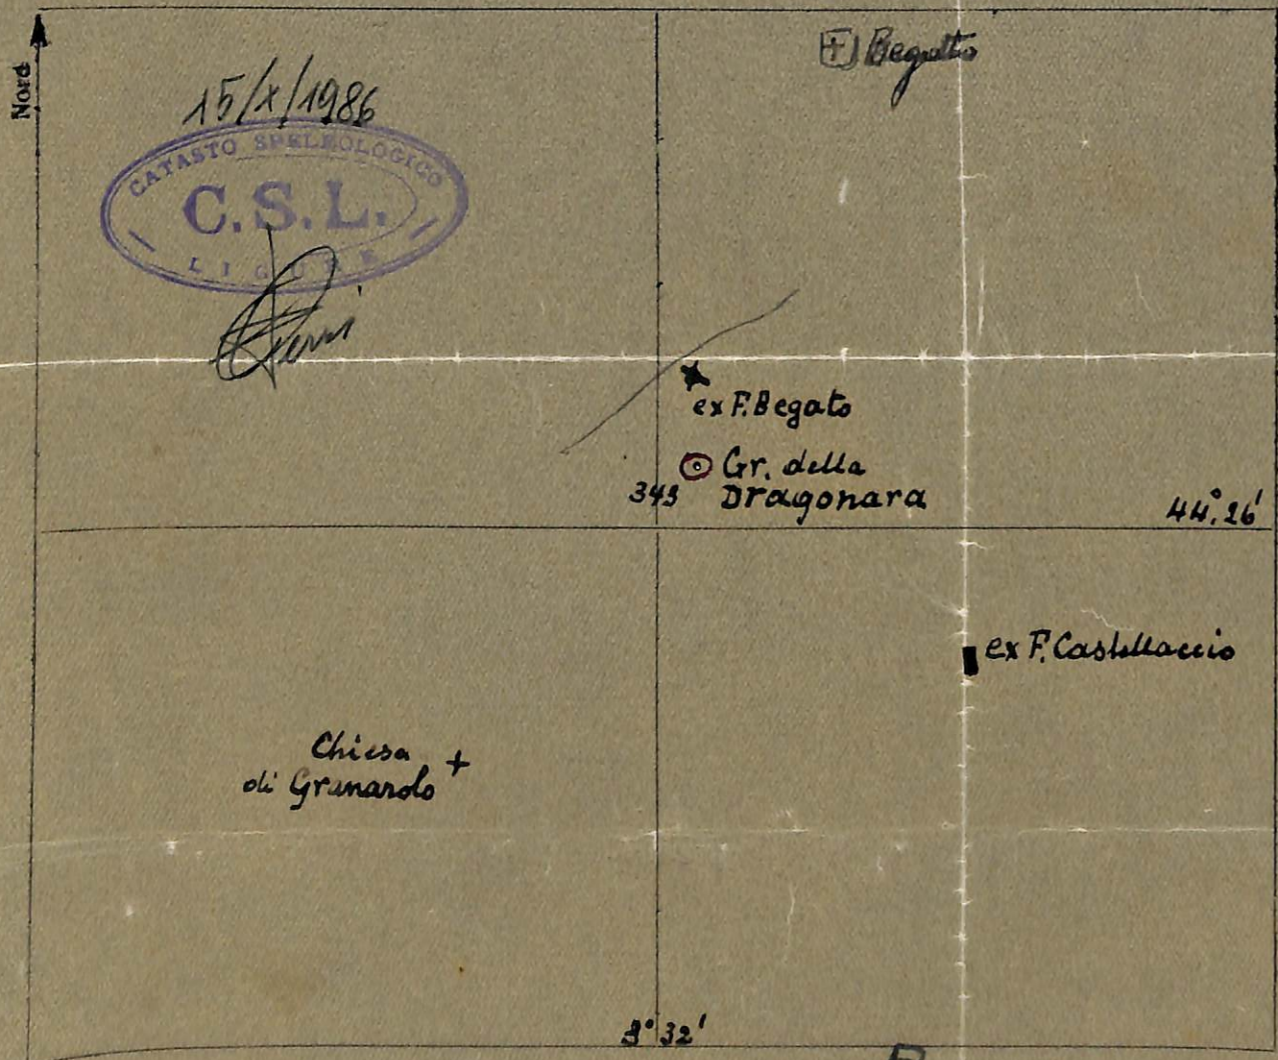 Nord
Begatto
15/X/1986
CATASTO SPELEOLOGICO
C.S.L.
LIGURE
ex F. Begato
Gr. della
343 Dragonara
44°.26'
ex F. Castellaccio
Chiesa
di Granarolo
3° 32'